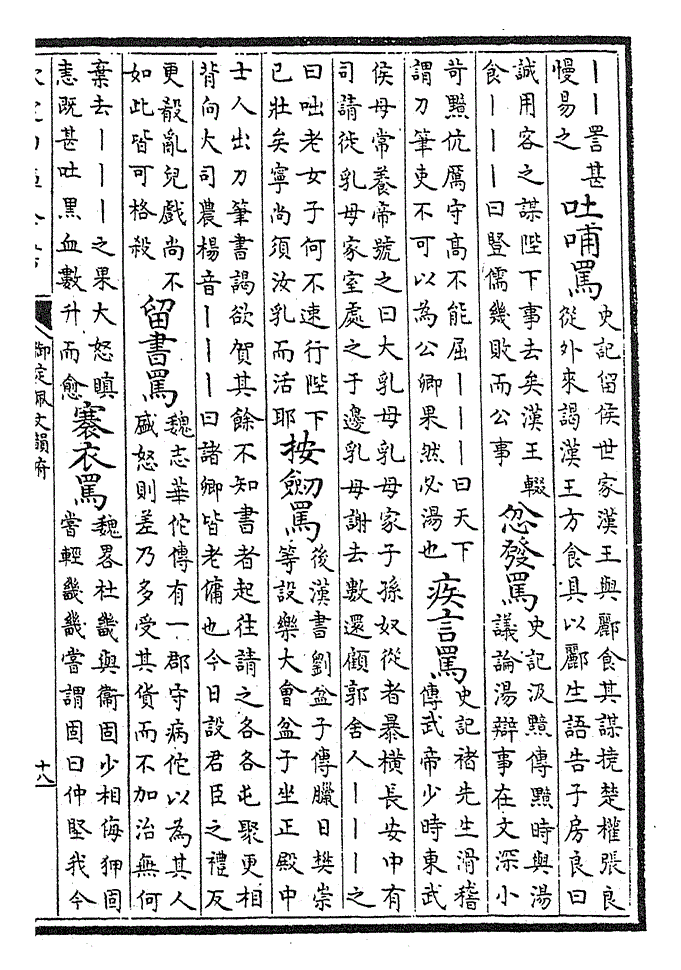 丨丨詈甚
慢易之
吐哺罵
史記留侯世家漢王與酈食其謀撓楚權張良
從外來謁漢王方食具以酈生語告子房良曰
誠用客之謀陛下事去矣漢王輟
食丨丨丨曰豎儒幾敗而公事
忿發罵
史記汲黯傳黯時與湯
議論湯辯事在文深小
苛黯伉厲守髙不能屈丨丨丨曰天下
謂刀筆吏不可以為公卿果然必湯也
疾言罵
史記褚先生滑稽
傳武帝少時東武
侯母常養帝號之曰大乳母乳母家子孫奴從者暴横長安中有
司請徙乳母家室處之于邊乳母謝去數還顧郭舍人丨丨丨之
曰咄老女子何不速行陛下
已壯矣寧尚須汝乳而活耶
按劒罵
後漢書劉盆子傳臘日樊崇
等設樂大會盆子坐正殿中
士人出刀筆書謁欲賀其餘不知書者起往請之各各屯聚更相
背向大司農楊音丨丨丨曰諸卿皆老傭也今日設君臣之禮反
更殽亂兒戲尚不
如此皆可格殺
留書罵
魏志華佗傳有一郡守病佗以為其人
盛怒則差乃多受其貨而不加治無何
棄去丨丨丨之果大怒瞋
恚既甚吐黒血數升而愈
褰衣罵
魏畧杜畿與衞固少相侮狎固
嘗輕畿畿嘗謂固曰仲堅我今
御定佩文韻府
十八